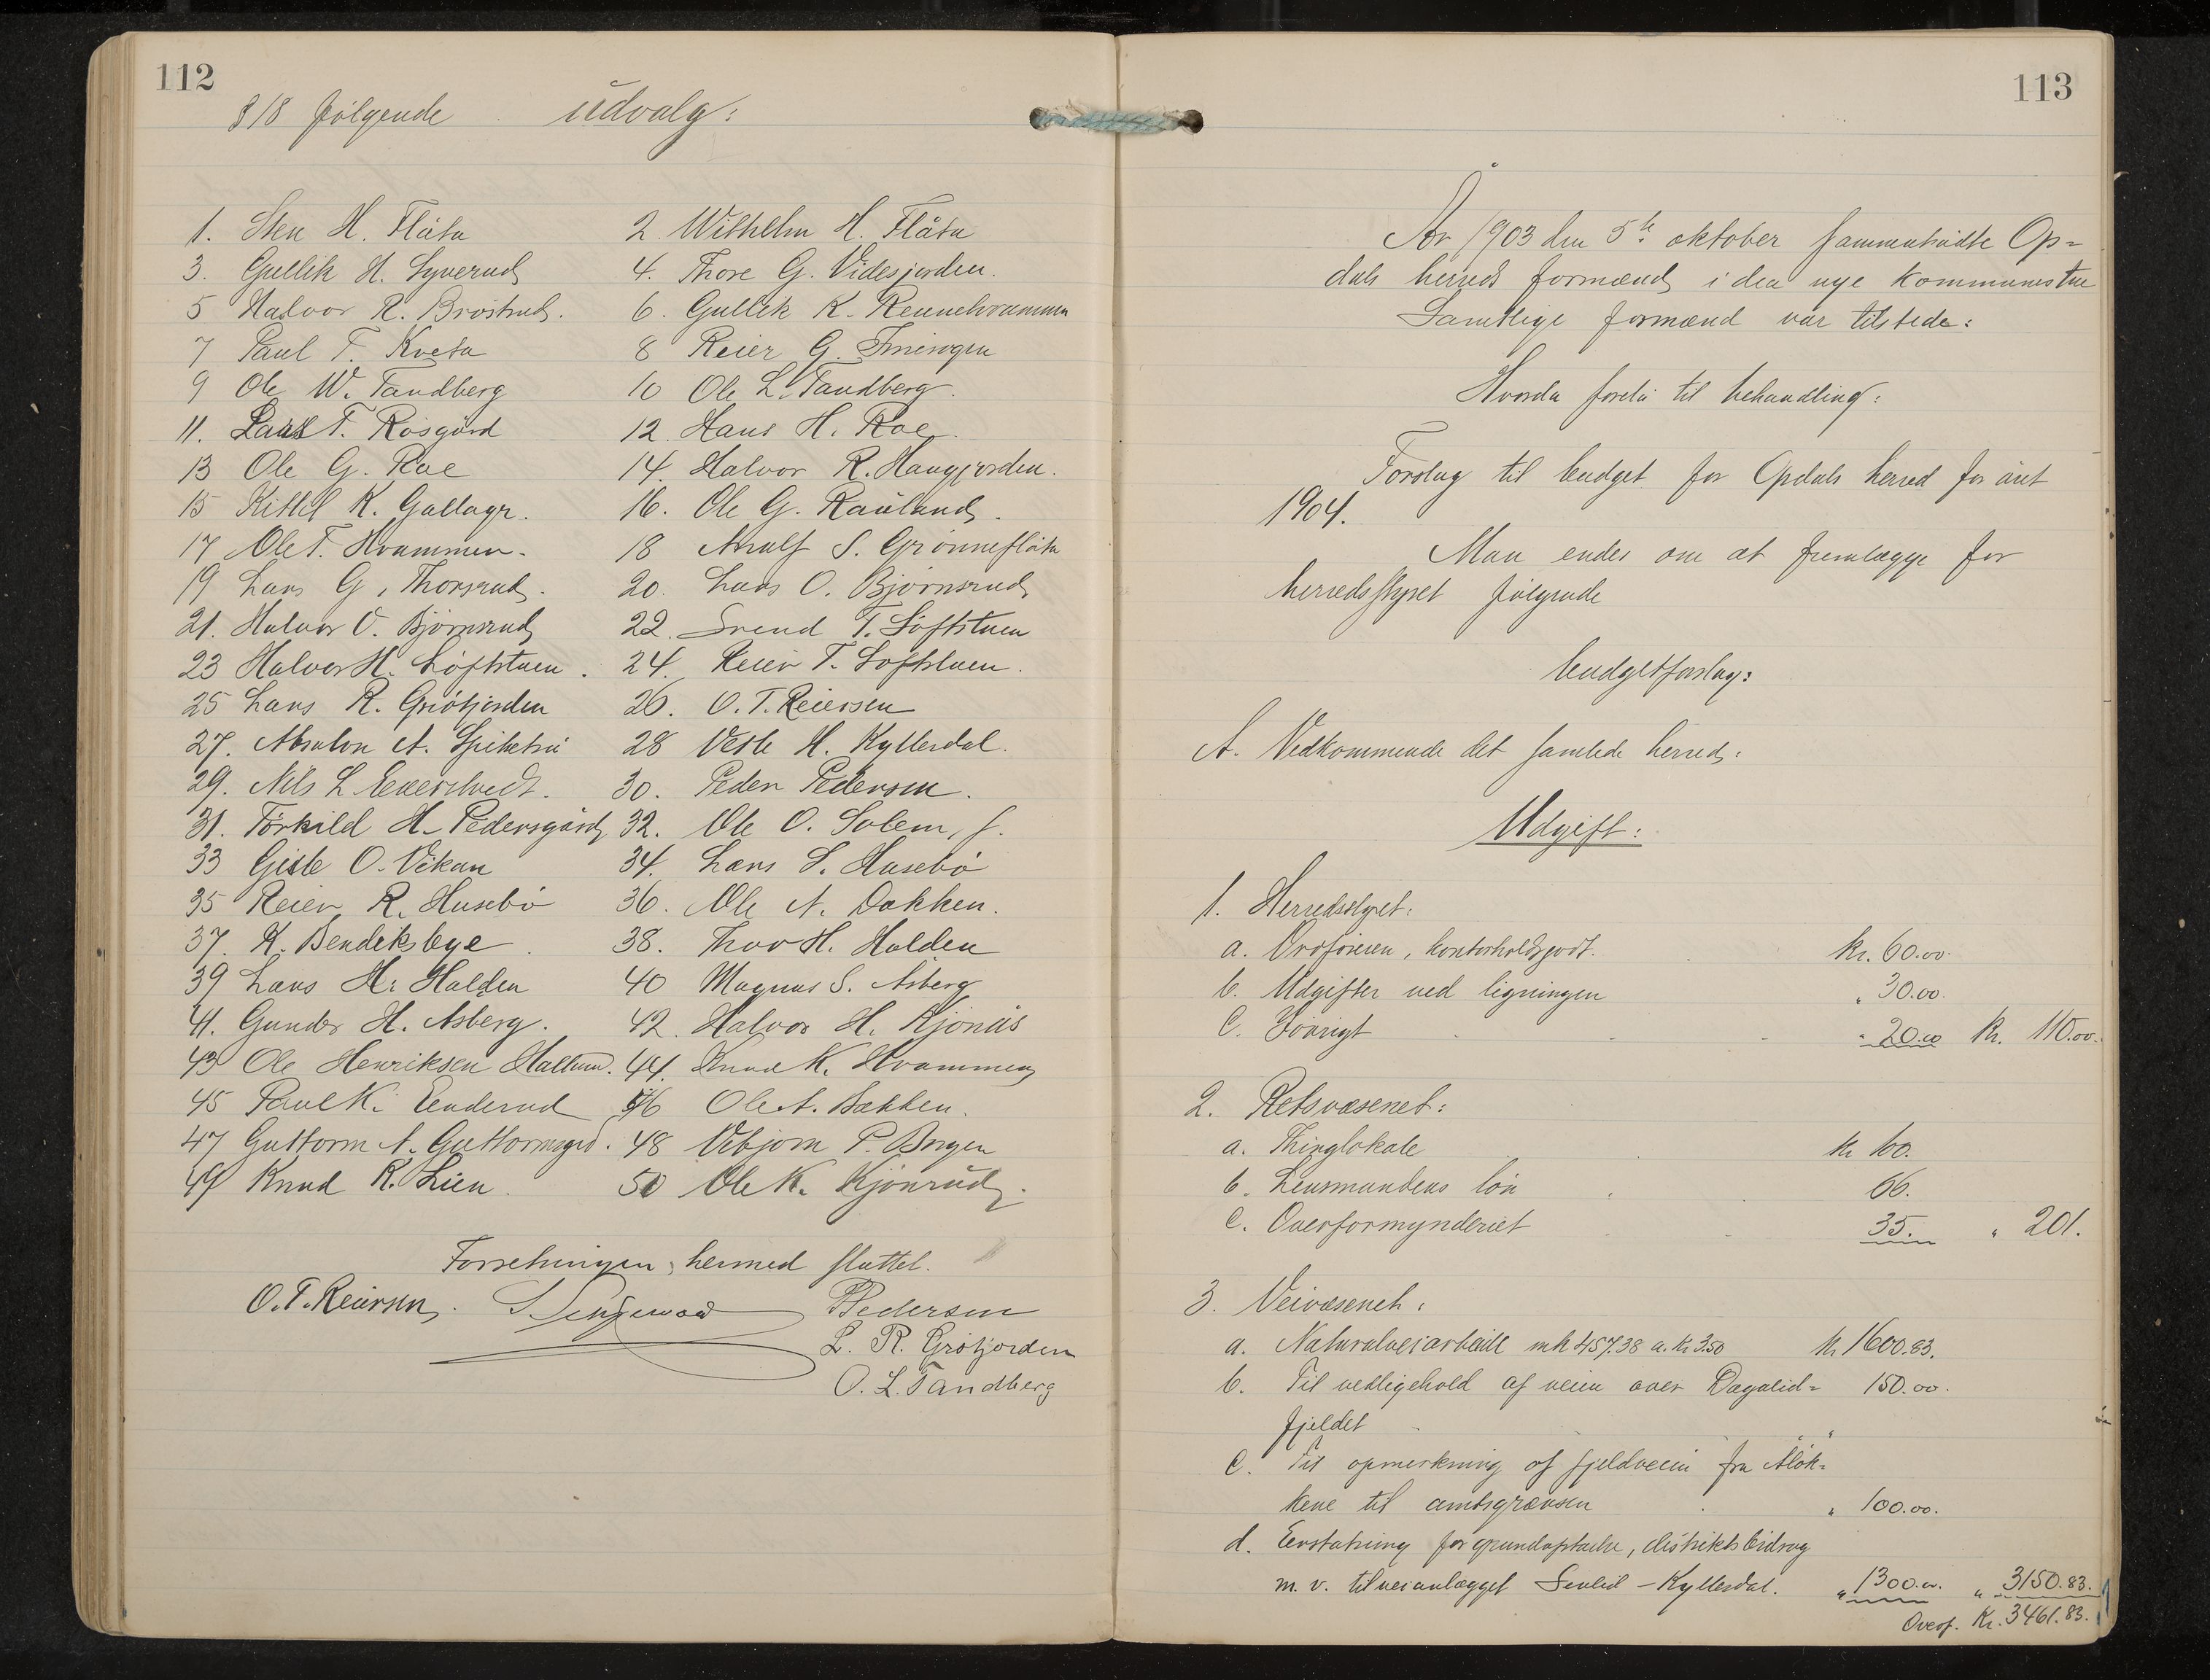 112
§18 følgende udvalg:
1. Sten H. Flåta 2. Wilhelm H. Flåta
3. Gullik H. Synerud 4. Thore G. Videsjorden.
5 Halvor R. Brøstrud. 6. Gullik K.
7 Paul T. Kveta 8 Reier G.
9 Ole W. Tandberg 10 Ole L. Tandberg.
11. Lars T. Rosgård 12. Hans H. Roe.
13 Ole G. Roe 14. Halvor R. Haugjorden.
15 Kittil K. Gallagr. 16. Ole G. Raüland.
17 Ole T. Hvammen. 18 S. Grønneflåta
19 Lars G. Thorsrud. 20. Lars O. Bjørnsrud
21. Halvor O. Bjørnsrud 22. Svend T. Løftstuen
23 Halvor H. Løftstuen. 24. Reier T. Loftstuen.
25 Lars R. Grøtjorden 26. O. T. Reiersen
27. Absalon A. 28 Vetle H. Kyllesdal.
29. Nils L. 30. Peder Pedersen.
31. Törkild H. Pedersgård 32. Ole O. Solem, s.
33 Gisle O. Vikan 34. Lars S. Husebö
35 Reier R. Husebö 36. Ole A. Dokken.
37. K. Bendiksbye 38. Thor H. Halden
39 Lars H. Halden 40 Magnus S. Åsberg
41. Gunder H. Åsberg. 42. Halvor H. Kjönås
43 Ole Henriksen 44. Knud K. Hvammen
45 Paul K. Enderud 46 Ole A. Bakken.
47 Guttorm A. Guttormsgrd. 48 Vebjørn P. Bergen
49 Knud R. Lien. 50 Ole K. Kjönrüd.
Forretningen hermed sluttet.
O. T. Reiersen. PPedersen
L. R. Grötjorden
O. L. Tandberg
113
År 1903 den 5te oktober sammentrådte Op=
dals herreds formænd i den nye kommunestue
Samtlige formænd var tilstede:
Hvorda forelå til behandling:
Forslag til budget for Opdals herred for året
1904.
Man endes om at fremlægge for
herredsstyret følgende
budgetforslag:
A. Vedkommende det samlede herred:
Udgift:
1. Herredsstyret:
a. Ordføreren, kontorholdsgodt. Kr. 60.00
b. Udgifter ved ligningen " 30.00.
c. Iövrigt " 20.00 Kr. 110.00.
2. Retsvæsenet:
a. Thinglokale Kr 100.
b. Lensmandens lön 66.
c. Overformynderiet 35. " 201.
3. Veivæsenet:
a. Naturalveiarbeide mk 457.38 a. Kr 3.50 Kr 1600.83.
b. Til vedligehold af veien over Dagalid= 150.00.
fjeldet
c. Til opmerkning af fjeldveien fra Åløk=
kene til amtsgrænsen " 100.00.
d. Erstatning for grundaftaelse, distriktsbidrag
m. v. til veianlægget Senlid - Kyllesdal. " 1300.00. " 3150.83.
Overf. Kr. 3461.83.